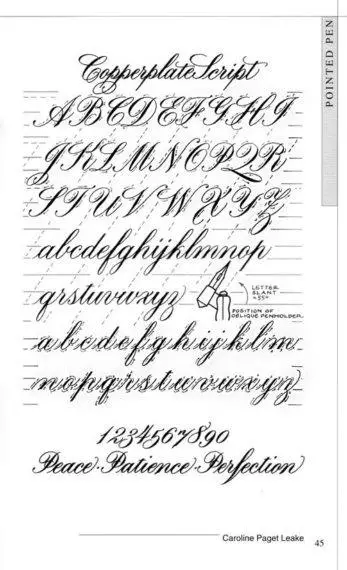 POINTED PEN
Copperplate Script
A B C D E F G H I
J K L M N O P Q R
S T U V W X Y Z
abcdefghijklmnop
qrstuvwxyz
LETTER
SLANT
=55°
POSITION OF
OBLIQUE PENHOLDER
abcdefghijklm
nopqrstuvwxyz
1234567890
Peace·Patience·Perfection
Caroline Paget Leake
45